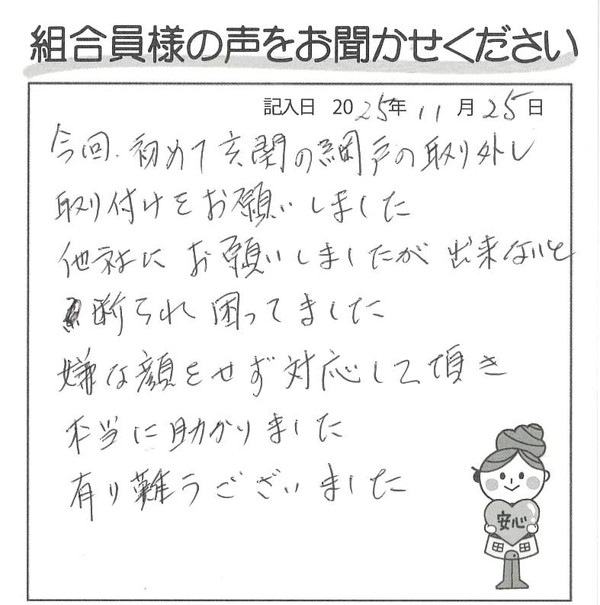 組合員様の声をお聞かせください
記入日 2025年 11月25日
今回、初めて玄関の網戸の取り外し
取り付けをお願いしました
他社に お願いしましたが 出来ないと
断られ 困ってました
嫌な顔をせず 対応して頂き
本当に助かりました
有り難うございました
安心